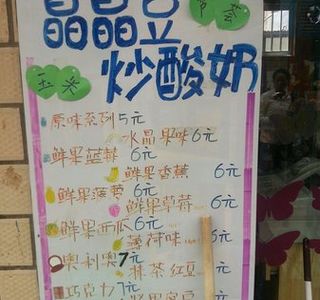 晶晶豆
芦荟
玉米
炒酸奶
原味系列5元
水晶果味6元
鲜果蓝莓 6元
鲜果香蕉 6元
鲜果菠萝 6元
鲜果草莓 6元
鲜果西瓜 6元
薄荷味 6元
奥利奥7元
抹茶红豆
巧克力7元